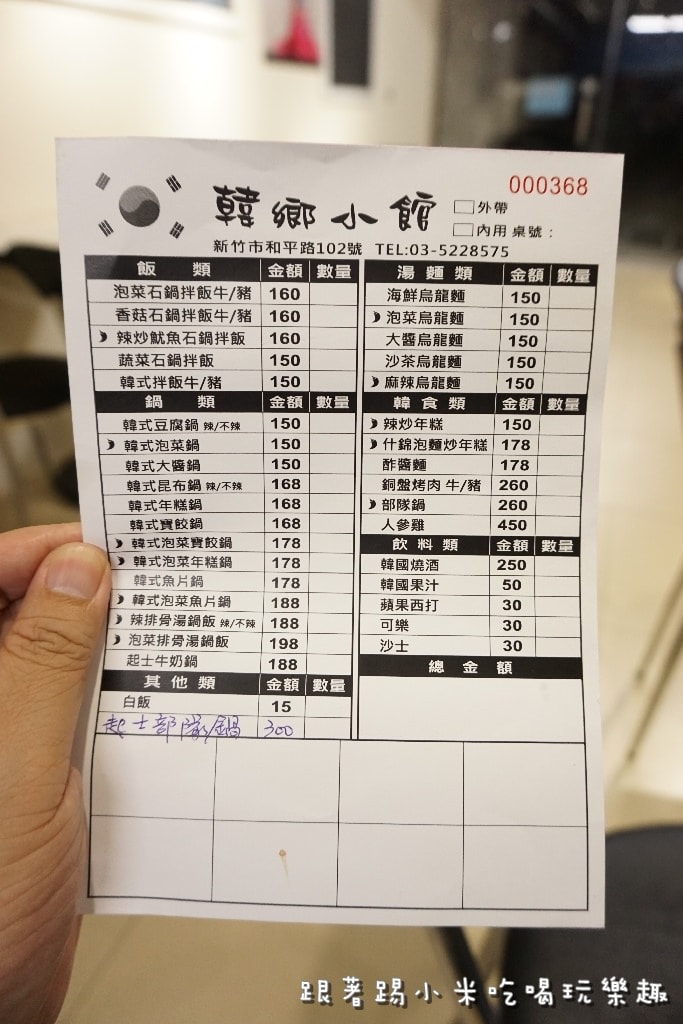 000368
韓鄉小館
外帶
內用 桌號：
新竹市和平路102號 TEL:03-5228575
飯類 金額 數量
泡菜石鍋拌飯牛/豬 160
香菇石鍋拌飯牛/豬 160
辣炒魷魚石鍋拌飯 160
蔬菜石鍋拌飯 150
韓式拌飯牛/豬 150
鍋類 金額 數量
韓式豆腐鍋 辣/不辣 150
韓式泡菜鍋 150
韓式大醬鍋 150
韓式昆布鍋 辣/不辣 168
韓式年糕鍋 168
韓式寶餃鍋 168
韓式泡菜寶餃鍋 178
韓式泡菜年糕鍋 178
韓式魚片鍋 178
韓式泡菜魚片鍋 188
辣排骨湯鍋飯 辣/不辣 188
泡菜排骨湯鍋飯 198
起士牛奶鍋 188
其他類 金額 數量
白飯 15
起士部隊鍋 300
湯麵類 金額 數量
海鮮烏龍麵 150
泡菜烏龍麵 150
大醬烏龍麵 150
沙茶烏龍麵 150
麻辣烏龍麵 150
韓食類 金額 數量
辣炒年糕 150
什錦泡麵炒年糕 178
酢醬麵 178
銅盤烤肉 牛/豬 260
部隊鍋 260
人參雞 450
飲料類 金額 數量
韓國燒酒 250
韓國果汁 50
蘋果西打 30
可樂 30
沙士 30
總金額
跟著踢小米吃喝玩樂趣